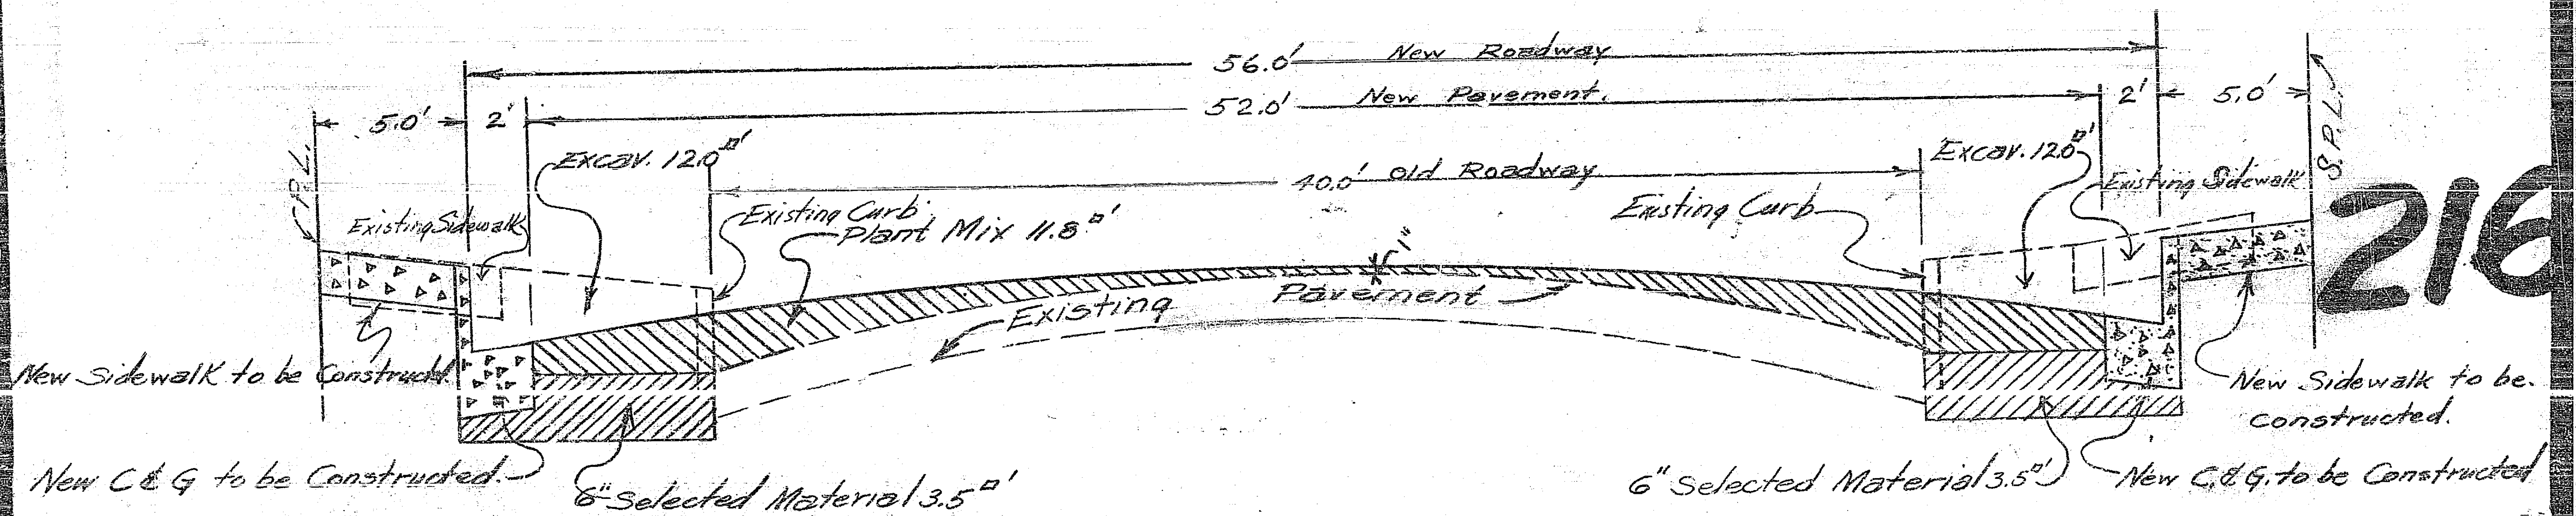 56.0' New Roadway
52.0' New Pavement.
5.0' 2'
2' 5.0'
P.L.
S.P.L.
Excav. 12.0 □'
Excav. 12.0 □'
40.0' Old Roadway
Existing Sidewalk
Existing Curb
Plant Mix 11.8 □'
Existing Curb
Existing Sidewalk
216
1"
Existing Pavement
New Sidewalk to be Constructd.
New Sidewalk to be.
constructed.
New C & G to be Constructed.
6" Selected Material 3.5 □'
6" Selected Material 3.5 □'
New C. & G. to be Constructed